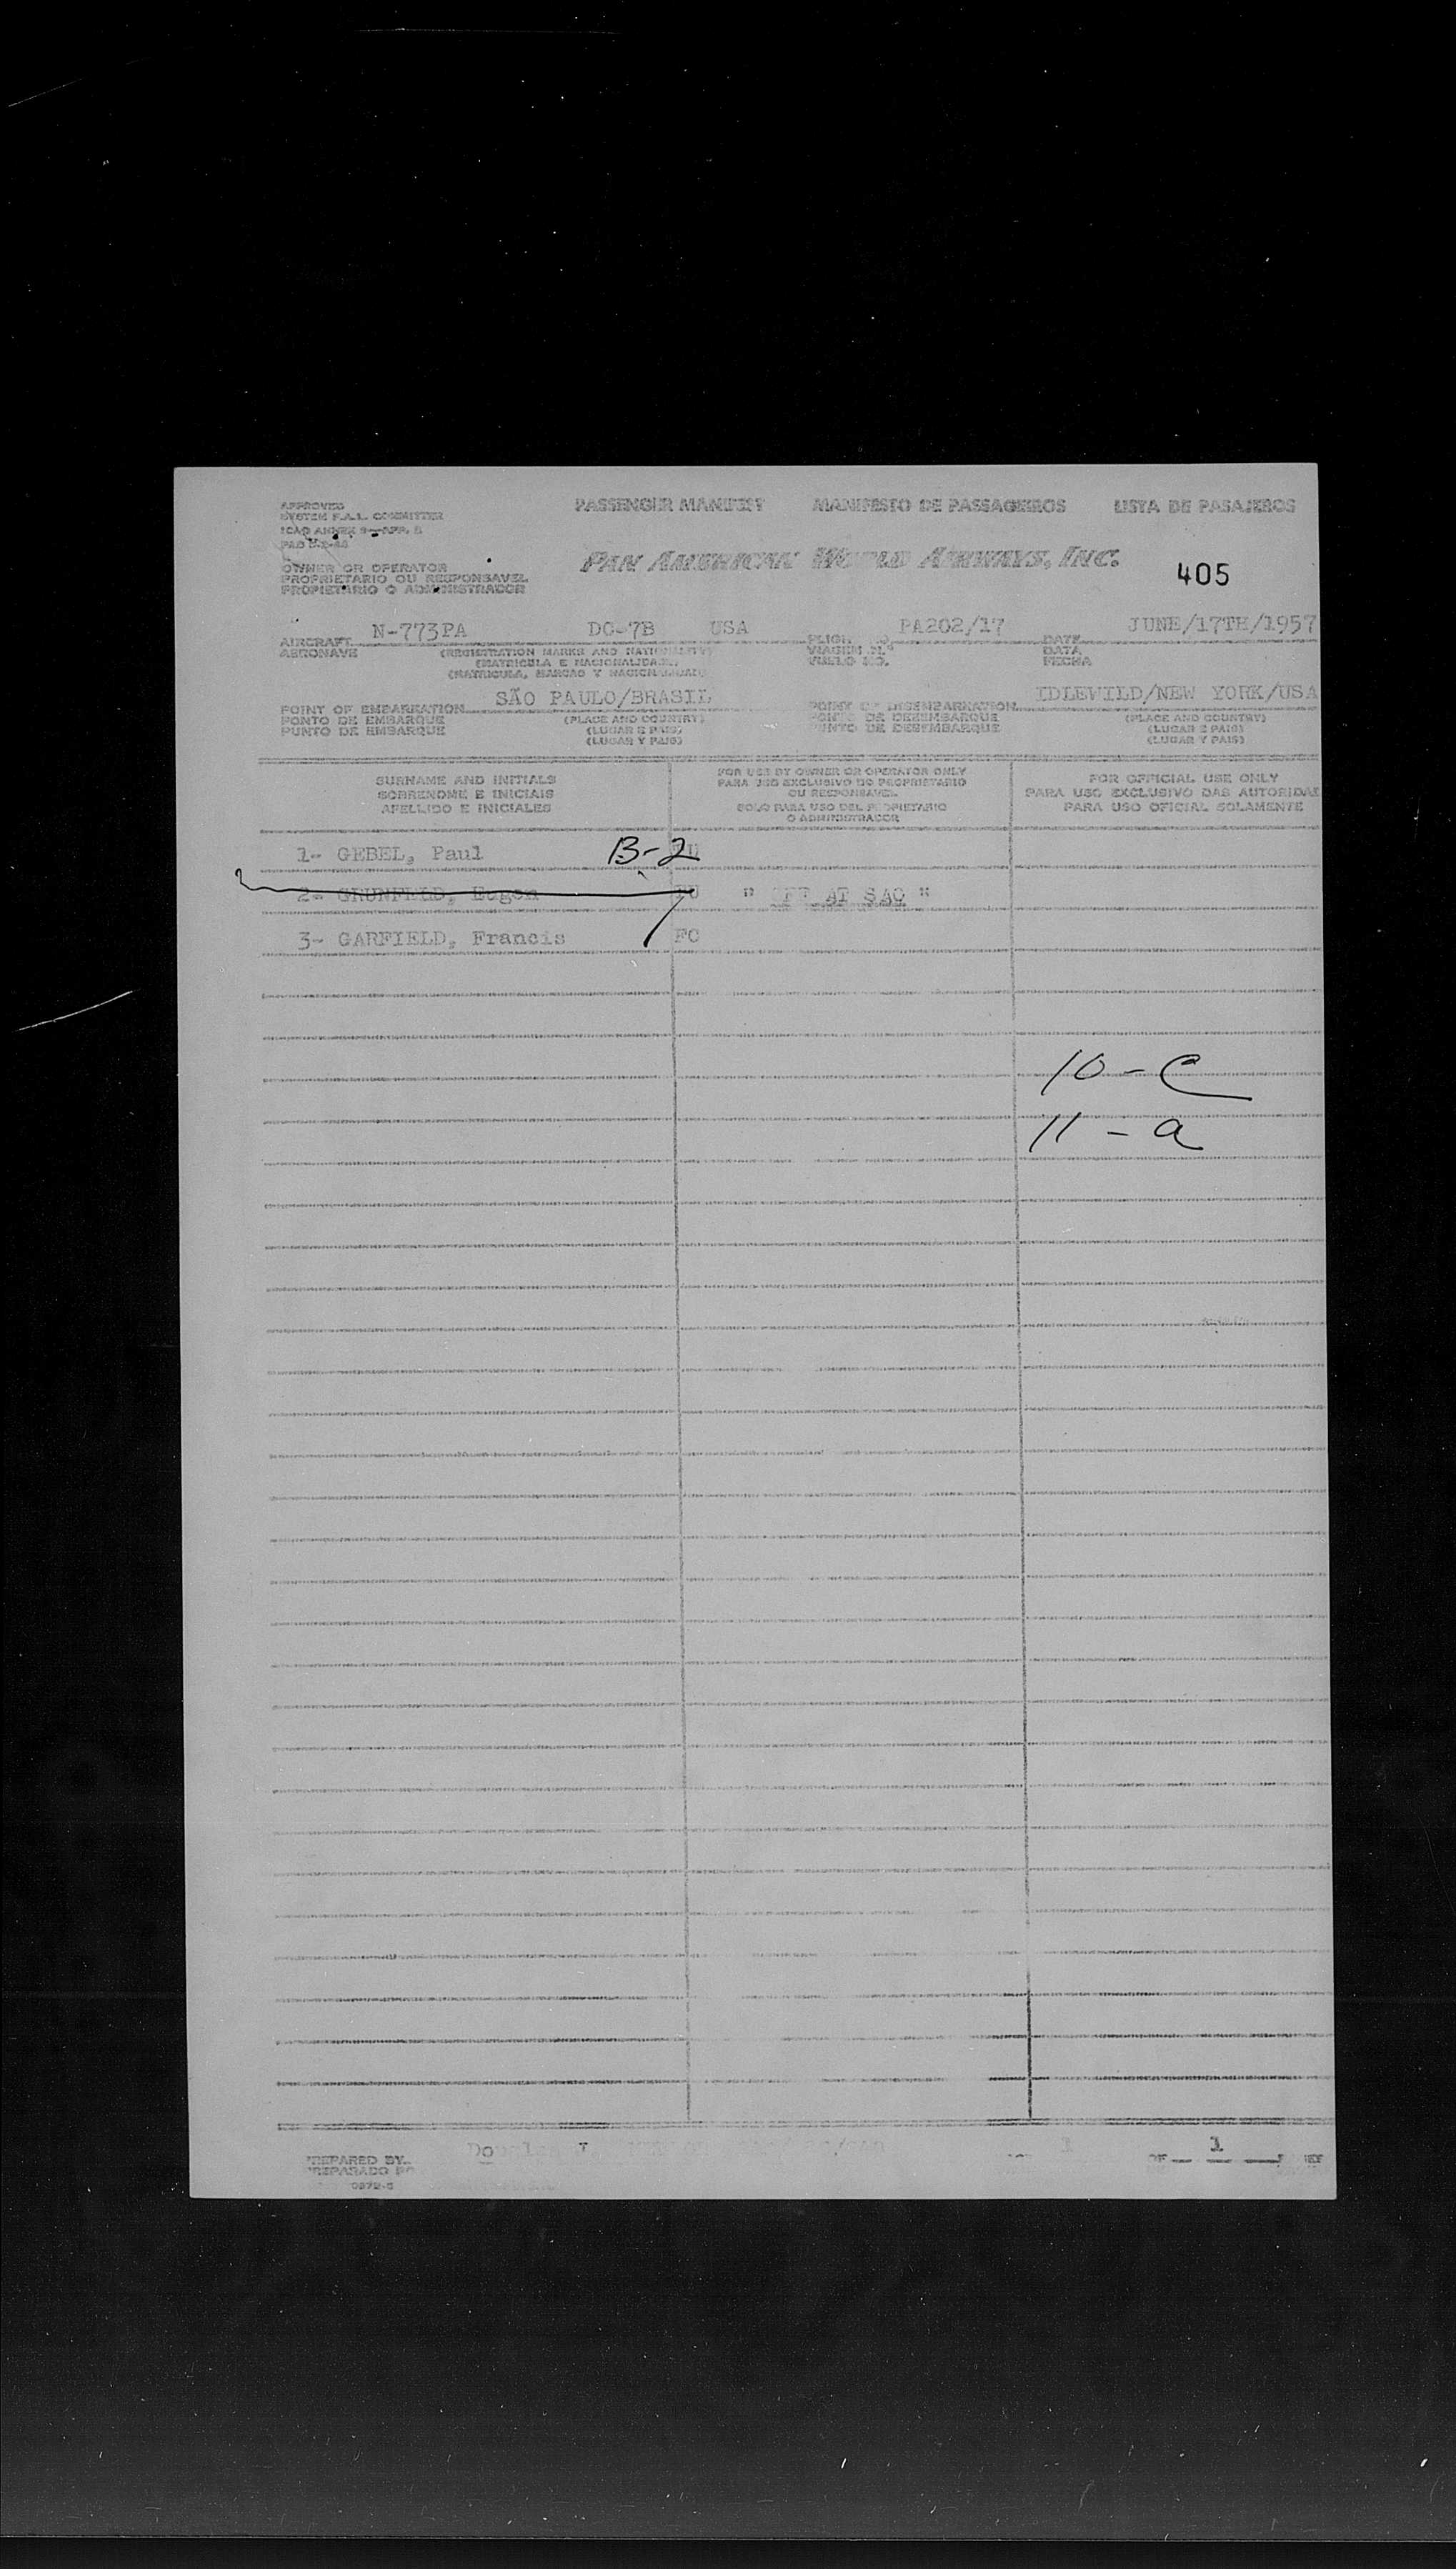 APPROVED PASSENGER MANIFEST MANIFESTO DE PASSAGEIROS LISTA DE PASAJEROS
SYSTEM F.A.L. COMMITTEE
ICAO ANNEX 9
PAN AMERICAN WORLD AIRWAYS, INC.
405
OWNER OR OPERATOR
PROPRIETARIO OU RESPONSAVEL
PROPIETARIO O ADMINISTRADOR
AIRCRAFT N-773PA DC-7B USA FLIGHT NO. PA202/17 DATE JUNE/17TH/1957
AERONAVE (REGISTRATION MARKS AND NATIONALITY) VIAGEM N.º DATA
(MATRICULA E NACIONALIDADE) VUELO NO. FECHA
(MATRICULA, MARCAS Y NACIONALIDAD)
POINT OF EMBARKATION SÃO PAULO/BRASIL POINT OF DISEMBARKATION IDLEWILD/NEW YORK/USA
PONTO DE EMBARQUE (PLACE AND COUNTRY) PONTO DE DESEMBARQUE (PLACE AND COUNTRY)
PUNTO DE EMBARQUE (LUGAR E PAIS) PUNTO DE DESEMBARQUE (LUGAR E PAIS)
(LUGAR Y PAIS) (LUGAR Y PAIS)
SURNAME AND INITIALS
SOBRENOME E INICIAIS
APELLIDO E INICIALES
FOR USE BY OWNER OR OPERATOR ONLY
PARA USO EXCLUSIVO DO PROPRIETARIO
OU RESPONSAVEL
SOLO PARA USO DEL PROPIETARIO
O ADMINISTRADOR
FOR OFFICIAL USE ONLY
PARA USO EXCLUSIVO DAS AUTORIDAD
PARA USO OFICIAL SOLAMENTE
1- GEBEL, Paul B-2
2- GRUNFELD, Eugen " OFF AT SAO "
3- GARFIELD, Francis FC
10-C
11-a
PREPARED BY
PREPARADO PO
1 OF 1